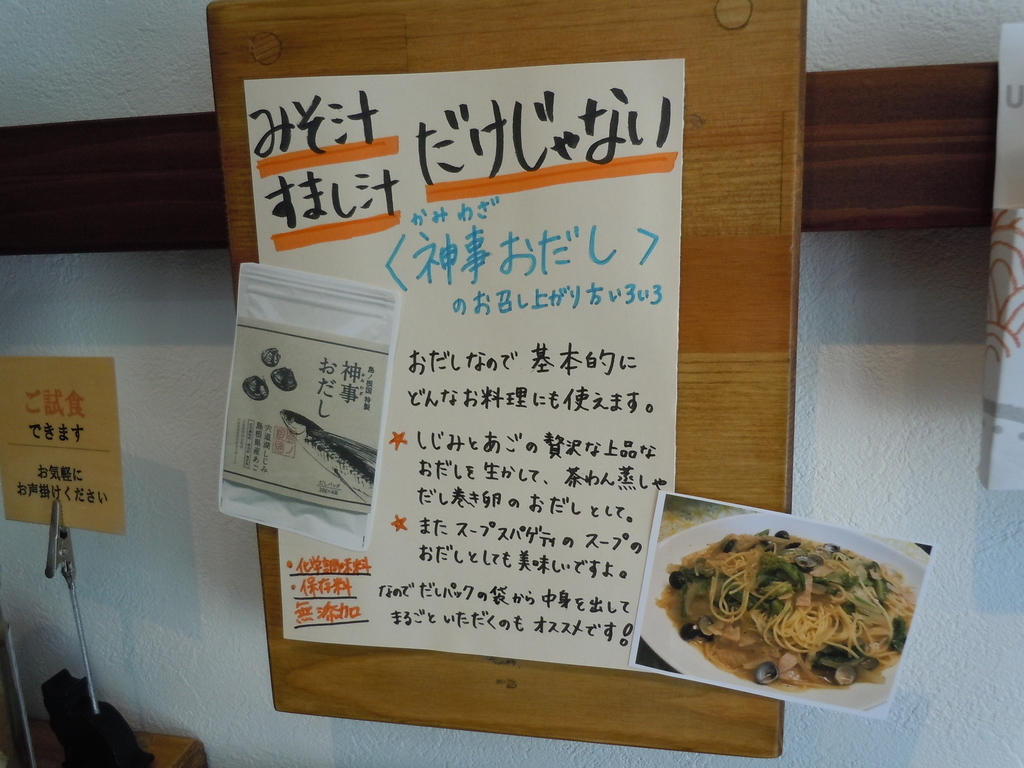 みそ汁
すまし汁
だけじゃない
かみわざ
〈神事おだし〉
のお召し上がり方いろいろ
おだしなので 基本的に
どんなお料理にも使えます。
★しじみとあごの贅沢な上品な
おだしを生かして、茶わん蒸しや
だし巻き卵のおだしとして。
★またスープスパゲティのスープの
おだしとしても美味いですよ。
なのでだしパックの袋から中身を出して
まるごといただくのもオススメです!
・化学調味料
・保存料
無添加
島ノ根国 特製
神事
おだし
宍道湖しじみ
島根県産あご
ご試食
できます
お気軽に
お声掛けください
U